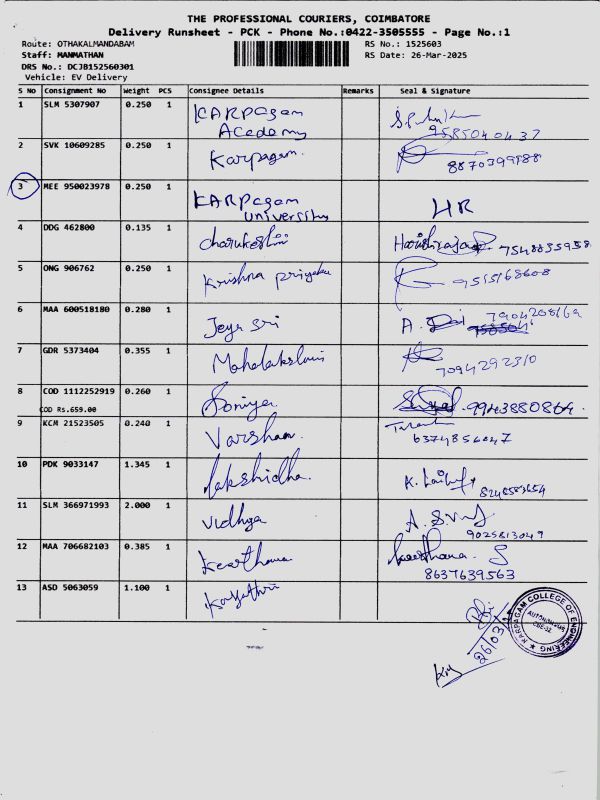 THE PROFESSIONAL COURIERS, COIMBATORE
Delivery Runsheet - PCK - Phone No.:0422-3505555 - Page No.:1
Route: OTHAKALMANDABAM RS No.: 1525603
Staff: MANMATHAN RS Date: 26-Mar-2025
DRS No.: DCJB152560301
Vehicle: EV Delivery
S No Consignment No Weight PCS Consignee Details Remarks Seal & Signature
1 SLM 5307907 0.250 1 KARPagam
Academy 9585040437
2 SVK 10609285 0.250 1 Karpagam. 8870399188
3 MEE 950023978 0.250 1 KARPagam HR
university
4 DDG 462800 0.135 1 charukeshi 7548835958
5 ONG 906762 0.250 1 Krishna priya 9515168608
6 MAA 600518180 0.280 1 Jeya sri A. 7904208169
7 GDR 5373404 0.355 1 Mahalakshmi 7094292310
8 COD 1112252919 0.260 1 Soniya 9943880864.
COD Rs.659.00
9 KCM 21523505 0.240 1 Varshaa. 6374856047
10 PDK 9033147 1.345 1 Lakshidha. K. 8248583654
11 SLM 366971993 2.000 1 Vidhya A. 9025813049
12 MAA 706682103 0.385 1 Keerthana Keerthana. S
8637639563
13 ASD 5063059 1.100 1 Kayathri
26/03/
KARPAGAM COLLEGE OF ENGINEERING
AUTONOMOUS
CBE-32